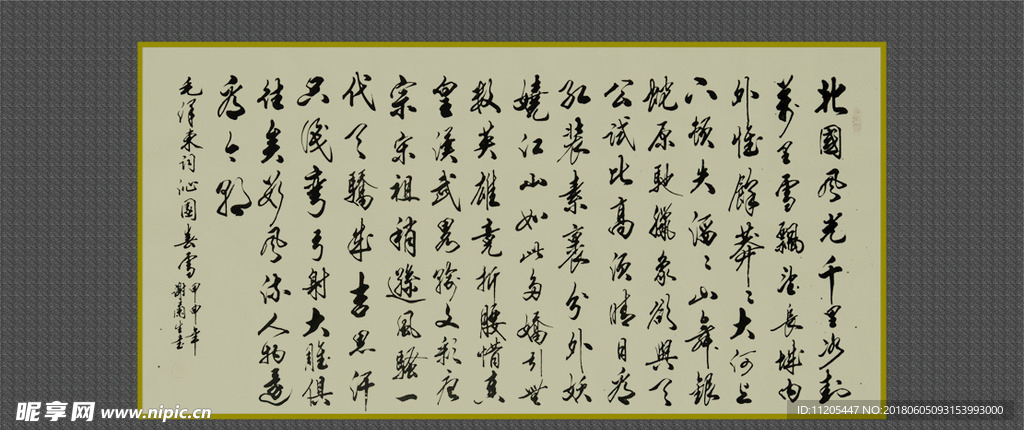 北國風光千里冰封
萬里雪飄望長城內
外惟餘莽〻大河上
下頓失滔〻山舞銀
蛇原馳臘象欲與天
公試比高須晴日看
紅裝素裹分外妖
嬈江山如此多嬌引無
數英雄竟折腰惜秦
皇漢武略輸文彩唐
宗宋祖稍遜風騷一
代天驕成吉思汗
只識彎弓射大雕俱
往矣數風流人物還
看今朝
毛澤東詞沁園春雪甲申年
昵享网 www.nipic.cn
ID:11205447 NO:20180605093153993000